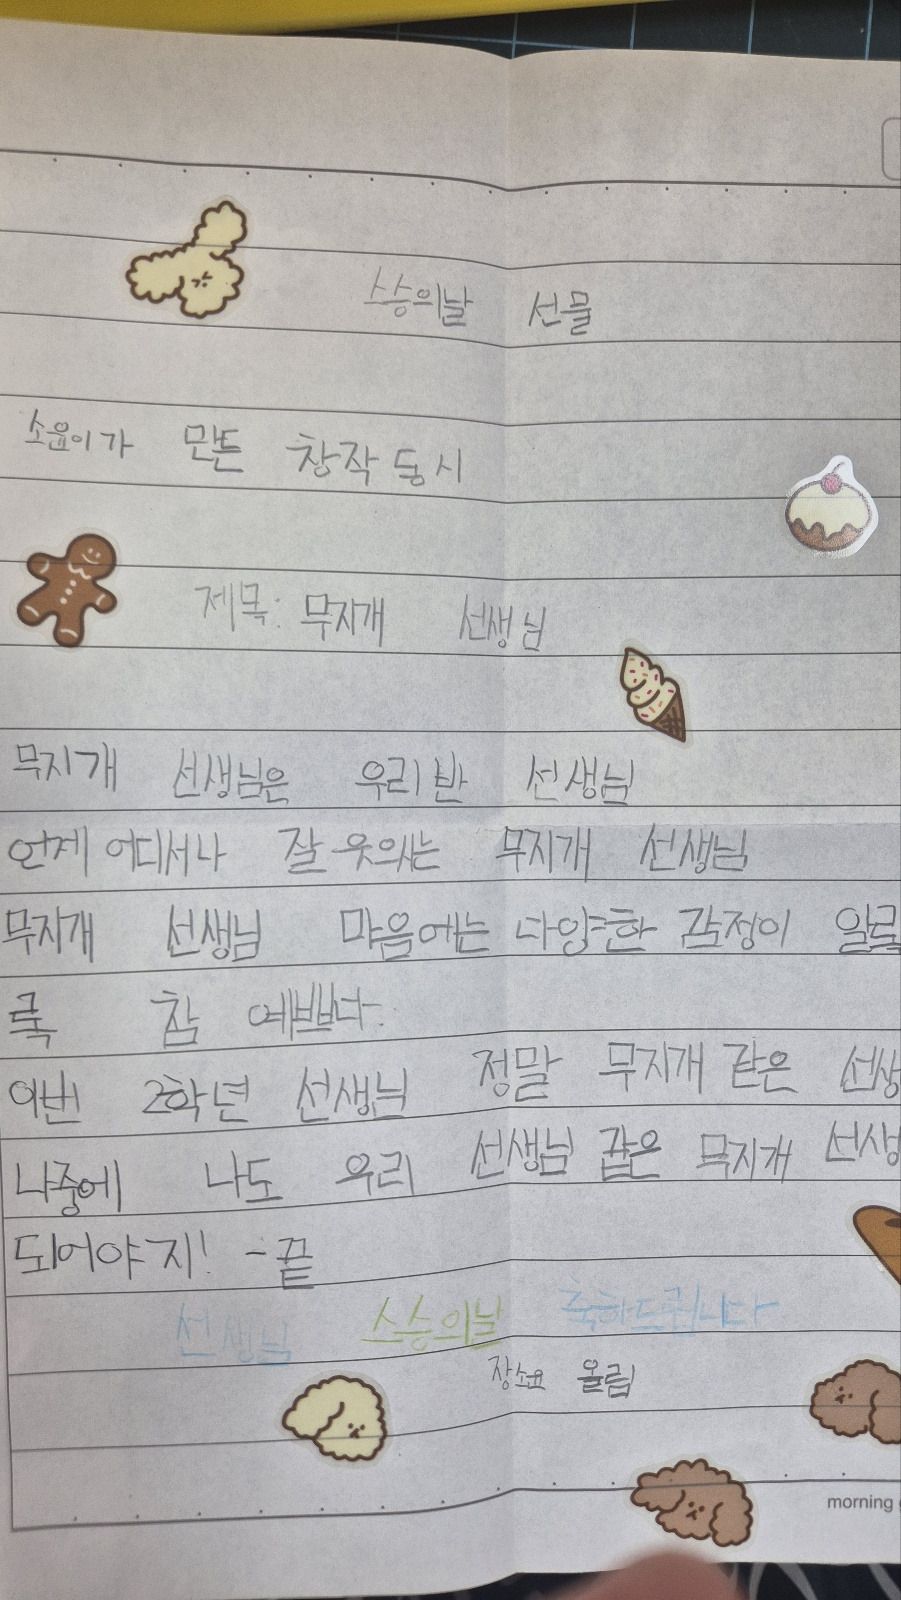 스승의날 선물
소윤이가 만든 창작 동시
제목: 무지개 선생님
무지개 선생님은 우리반 선생님
언제 어디서나 잘 웃의시는 무지개 선생님
무지개 선생님 마음에는 다양한 감정이 알록
록 참 예쁘다.
이번 2학년 선생님 정말 무지개 같은 선생
나중에 나도 우리 선생님 같은 무지개 선생
되어야지! - 끝
선생님 스승의날 축하드립니다
장소윤 올림
morning